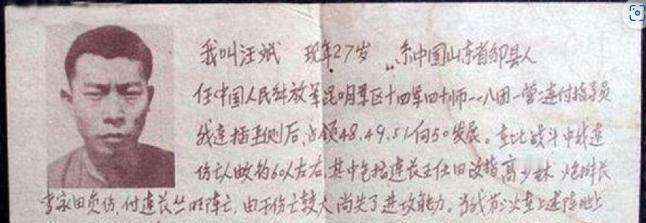 我叫汪斌 现年27岁 系中国山东省邹县人
任中国人民解放军昆明军区十四军四十师一一八团一营一连付指导员
我连插主侧后,占领48.49.51向50发展。在此战斗中我连
伤亡人数约60人左右,其中包括连长王仕田 政指高 林 炮排长
李家田负伤,付连长丛 明阵亡,由于伤亡较大尚失了进攻能力。当我第 次在上述阵地上